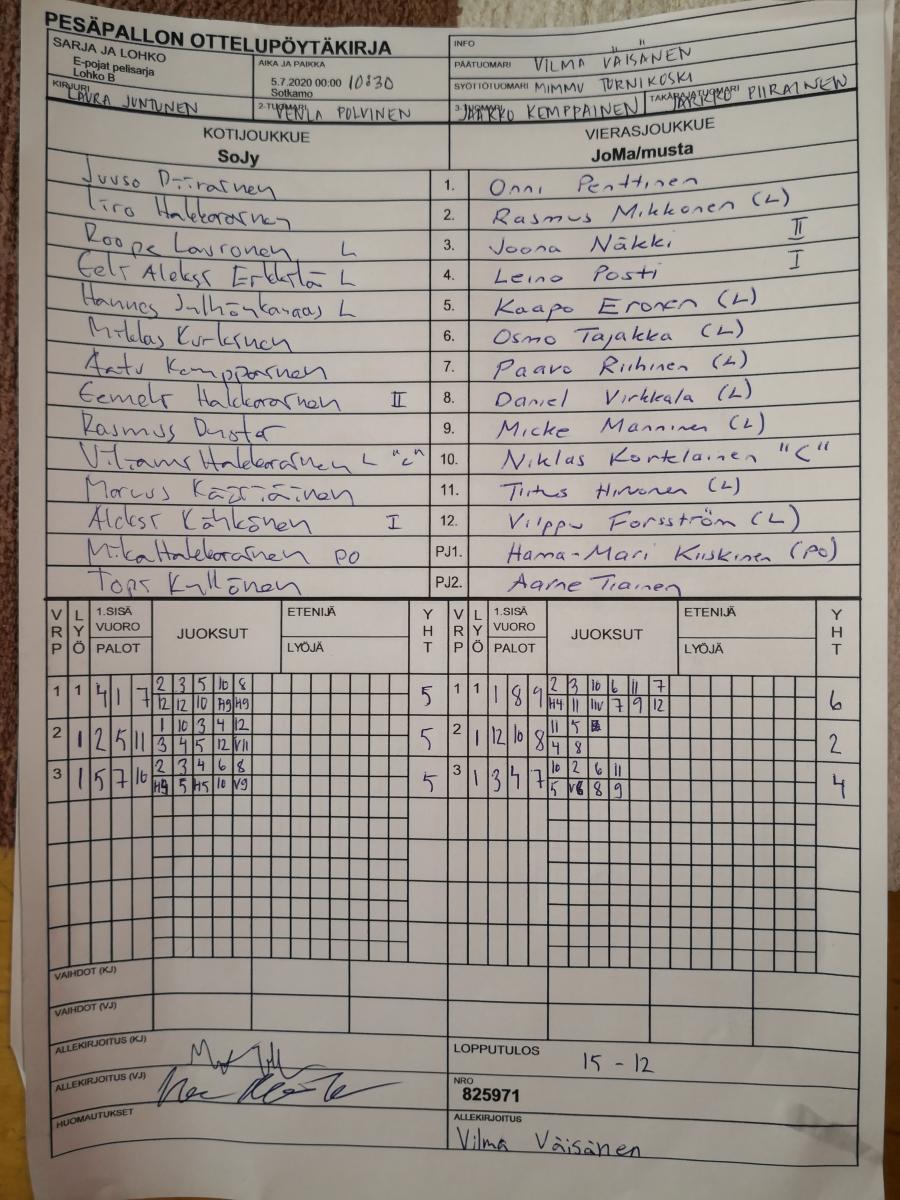 PESÄPALLON OTTELUPÖYTÄKIRJA
SARJA JA LOHKO
E-pojat pelisarja
Lohko B
AIKA JA PAIKKA
5.7.2020 00:00 10:30
Sotkamo
INFO
PÄÄTUOMARI VILMA VÄISÄNEN
SYÖTTÖTUOMARI MIMMU TURNIKOSKI
KIRJURI LAURA JUNTUNEN
2-TUOMARI VENLA POLVINEN
3-TUOMARI JAAKKO KEMPPAINEN
TAKARAJATUOMARI JARKKO PIIRAINEN
KOTIJOUKKUE VIERASJOUKKUE
SoJy JoMa/musta
Juuso Piirainen 1. Onni Penttinen
Iiro Hakkarainen 2. Rasmus Mikkonen (L)
Roope Lauronen L 3. Joona Näkki II
Eeli Aleksi Erkkilä L 4. Leino Posti I
Hannes Julhönkangas L 5. Kaapo Eronen (L)
Miklas Kurkinen 6. Osmo Tajakka (L)
Aatu Kemppainen 7. Paavo Riihinen (L)
Eemeli Hakkarainen II 8. Daniel Virkkala (L)
Rasmus 9. Micke Manninen (L)
Viliami Hakkarainen L "C" 10. Niklas Kortelainen "C"
Marcus Kääriäinen 11. Tiitus Hirvonen (L)
Aleksi Kähkönen I 12. Vilppu Forsström (L)
Mika Hakkarainen PO PJ1. Hanna-Mari Kiiskinen (PO)
Topi Kyllönen PJ2. Aarne Tiainen
VRP LYÖ 1.SISÄ VUORO PALOT JUOKSUT ETENIJÄ LYÖJÄ YHT VRP LYÖ 1.SISÄ VUORO PALOT JUOKSUT ETENIJÄ LYÖJÄ YHT
1 1 4 1 7 2 3 5 10 8 5 1 1 1 8 9 2 3 10 6 11 7 6
12 12 10 H9 H9 H4 11 11V 7 9 12
2 1 2 5 11 1 10 3 4 12 5 2 1 12 10 8 11 5 2
3 4 5 12 V11 4 8
3 1 5 7 10 2 3 4 6 8 5 3 1 3 4 7 10 2 6 11 4
H9 5 H5 10 V9 5 V6 8 9
VAIHDOT (KJ)
VAIHDOT (VJ)
ALLEKIRJOITUS (KJ)
LOPPUTULOS 15 - 12
ALLEKIRJOITUS (VJ)
NRO
825971
HUOMAUTUKSET
ALLEKIRJOITUS
Vilma Väisänen